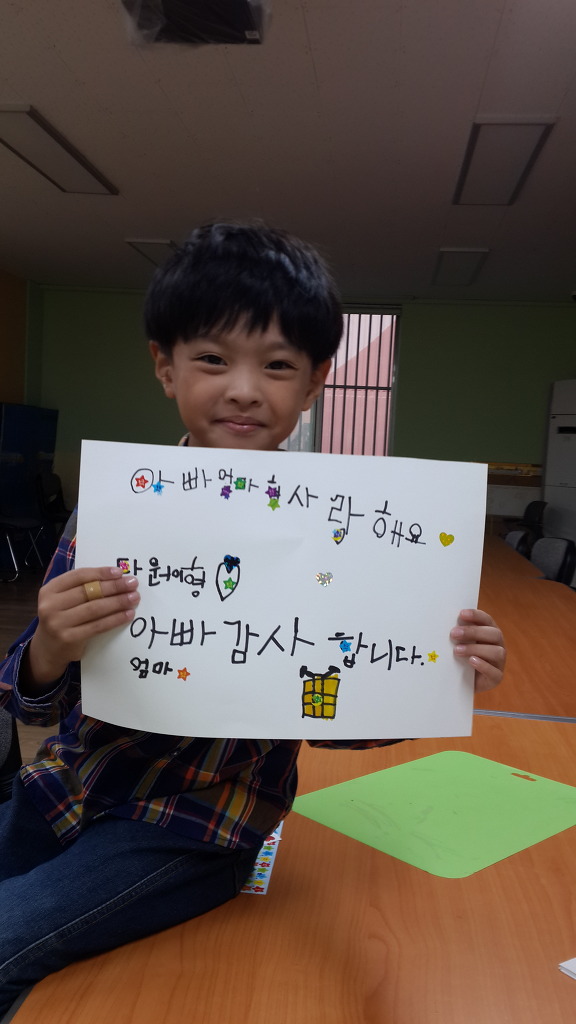 아빠 엄마 형 사랑해요
원이형
아빠 감사합니다.
엄마